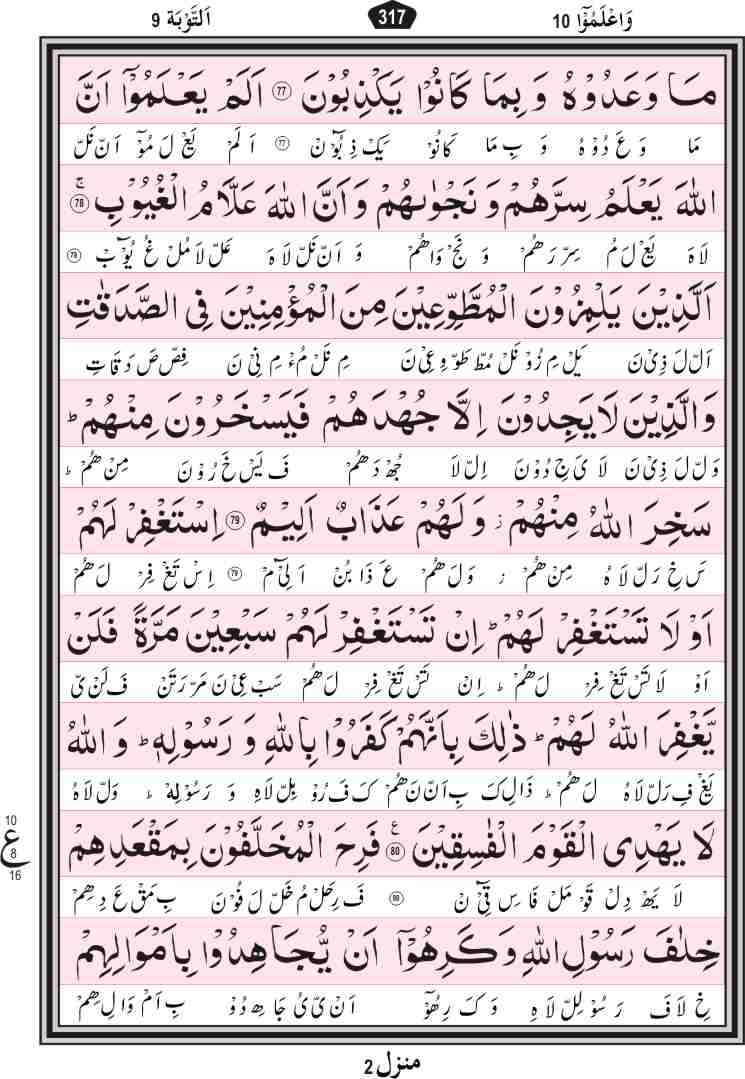 اَلتَّوْبَة 9 317 وَاعْلَمُوْۤا 10
مَا وَعَدُوْهُ وَ بِمَا كَانُوْا يَكْذِبُوْنَ ۝77 اَلَمْ يَعْلَمُوْۤا اَنَّ
مَا وَ عَ دُوْ هُ وَ بِ مَا كَانُوْ يَكْ ذِ بُوْٓ نْ ۝77 اَ لَمْ يَعْ لَ مُوْٓ اَنْ نَلْ
اللّٰهَ يَعْلَمُ سِرَّهُمْ وَ نَجْوٰىهُمْ وَ اَنَّ اللّٰهَ عَلَّامُ الْغُيُوْبِۚ ۝78
لَا هَ يَعْ لَ مُ سِرْ رَ هُمْ وَ نَجْ وَا هُمْ وَ اَنْ نَلْ لَا هَ عَلْ لَا مُلْ غُ يُوْٓ بْ ۝78
اَلَّذِيْنَ يَلْمِزُوْنَ الْمُطَّوِّعِيْنَ مِنَ الْمُؤْمِنِيْنَ فِى الصَّدَقٰتِ
اَلْ لَ ذِيْ نَ يَلْ مِ زُوْ نَلْ مُطْ طَوْ وِ عِيْ نَ مِ نَلْ مُءْ مِ نِيْ نَ فِصْ صَ دَ قَا تِ
وَالَّذِيْنَ لَا يَجِدُوْنَ اِلَّا جُهْدَهُمْ فَيَسْخَرُوْنَ مِنْهُمْؕ
وَلْ لَ ذِيْ نَ لَا يَ جِ دُوْ نَ اِلْ لَا جُهْ دَ هُمْ فَ يَسْ خَ رُوْ نَ مِنْ هُمْؕ
سَخِرَ اللّٰهُ مِنْهُمْؗ وَ لَهُمْ عَذَابٌ اَلِيْمٌ ۝79 اِسْتَغْفِرْ لَهُمْ
سَ خِ رَلْ لَا هُ مِنْ هُمْؗ وَ لَ هُمْ عَ ذَا بُنْ اَ لِيْٓ مْ ۝79 اِسْ تَغْ فِرْ لَ هُمْ
اَوْ لَا تَسْتَغْفِرْ لَهُمْؕ اِنْ تَسْتَغْفِرْ لَهُمْ سَبْعِيْنَ مَرَّةً فَلَنْ
اَوْ لَا تَسْ تَغْ فِرْ لَ هُمْؕ اِنْ تَسْ تَغْ فِرْ لَ هُمْ سَبْ عِيْ نَ مَرْ رَ تَنْ فَ لَنْ يْ
يَّغْفِرَ اللّٰهُ لَهُمْؕ ذٰلِكَ بِاَنَّهُمْ كَفَرُوْا بِاللّٰهِ وَ رَسُوْلِهٖؕ وَ اللّٰهُ
يَغْ فِ رَلْ لَا هُ لَ هُمْؕ ذَا لِ كَ بِ اَنْ نَ هُمْ كَ فَ رُوْ بِلْ لَا هِ وَ رَ سُوْ لِهٖؕ وَلْ لَا هُ
لَا يَهْدِى الْقَوْمَ الْفٰسِقِيْنَ۠ ۝80 فَرِحَ الْمُخَلَّفُوْنَ بِمَقْعَدِهِمْ
لَا يَهْ دِلْ قَوْ مَلْ فَا سِ قِيْٓ نْ ۝80 فَ رِ حَلْ مُ خَلْ لَ فُوْ نَ بِ مَقْ عَ دِ هِمْ
10
ع
8
16
خِلٰفَ رَسُوْلِ اللّٰهِ وَ كَرِهُوْۤا اَنْ يُّجَاهِدُوْا بِاَمْوَالِهِمْ
خِ لَا فَ رَ سُوْ لِلْ لَا هِ وَ كَ رِ هُوْٓ اَنْ يْ يُ جَا هِ دُوْ بِ اَمْ وَا لِ هِمْ
منزل 2